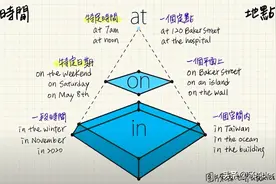 時間
地點
at
特定時間
at 7am
at noon
一個定點
at 120 Baker Street
at the hospital
on
特定日期
on the weekend
on Saturday
on May 8th
一個平面上
on Baker Street
on an island
on the wall
in
一段時間
in the winter
in November
in 2020
一個空間內
in Taiwan
in the ocean
in the building